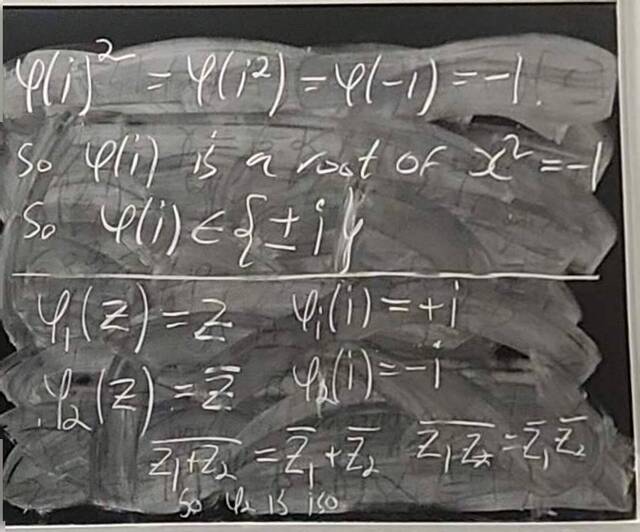 φ(i)² = φ(i²) = φ(-1) = -1.
So φ(i) is a root of x² = -1
So φ(i) ∈ {± i}
φ₁(z) = z φ₁(i) = +i
φ₂(z) = z̅ φ₂(i) = -i
\overline{z₁+z₂} = z̅₁ + z̅₂ \overline{z₁z₂} = z̅₁ z̅₂
So φ₂ is iso